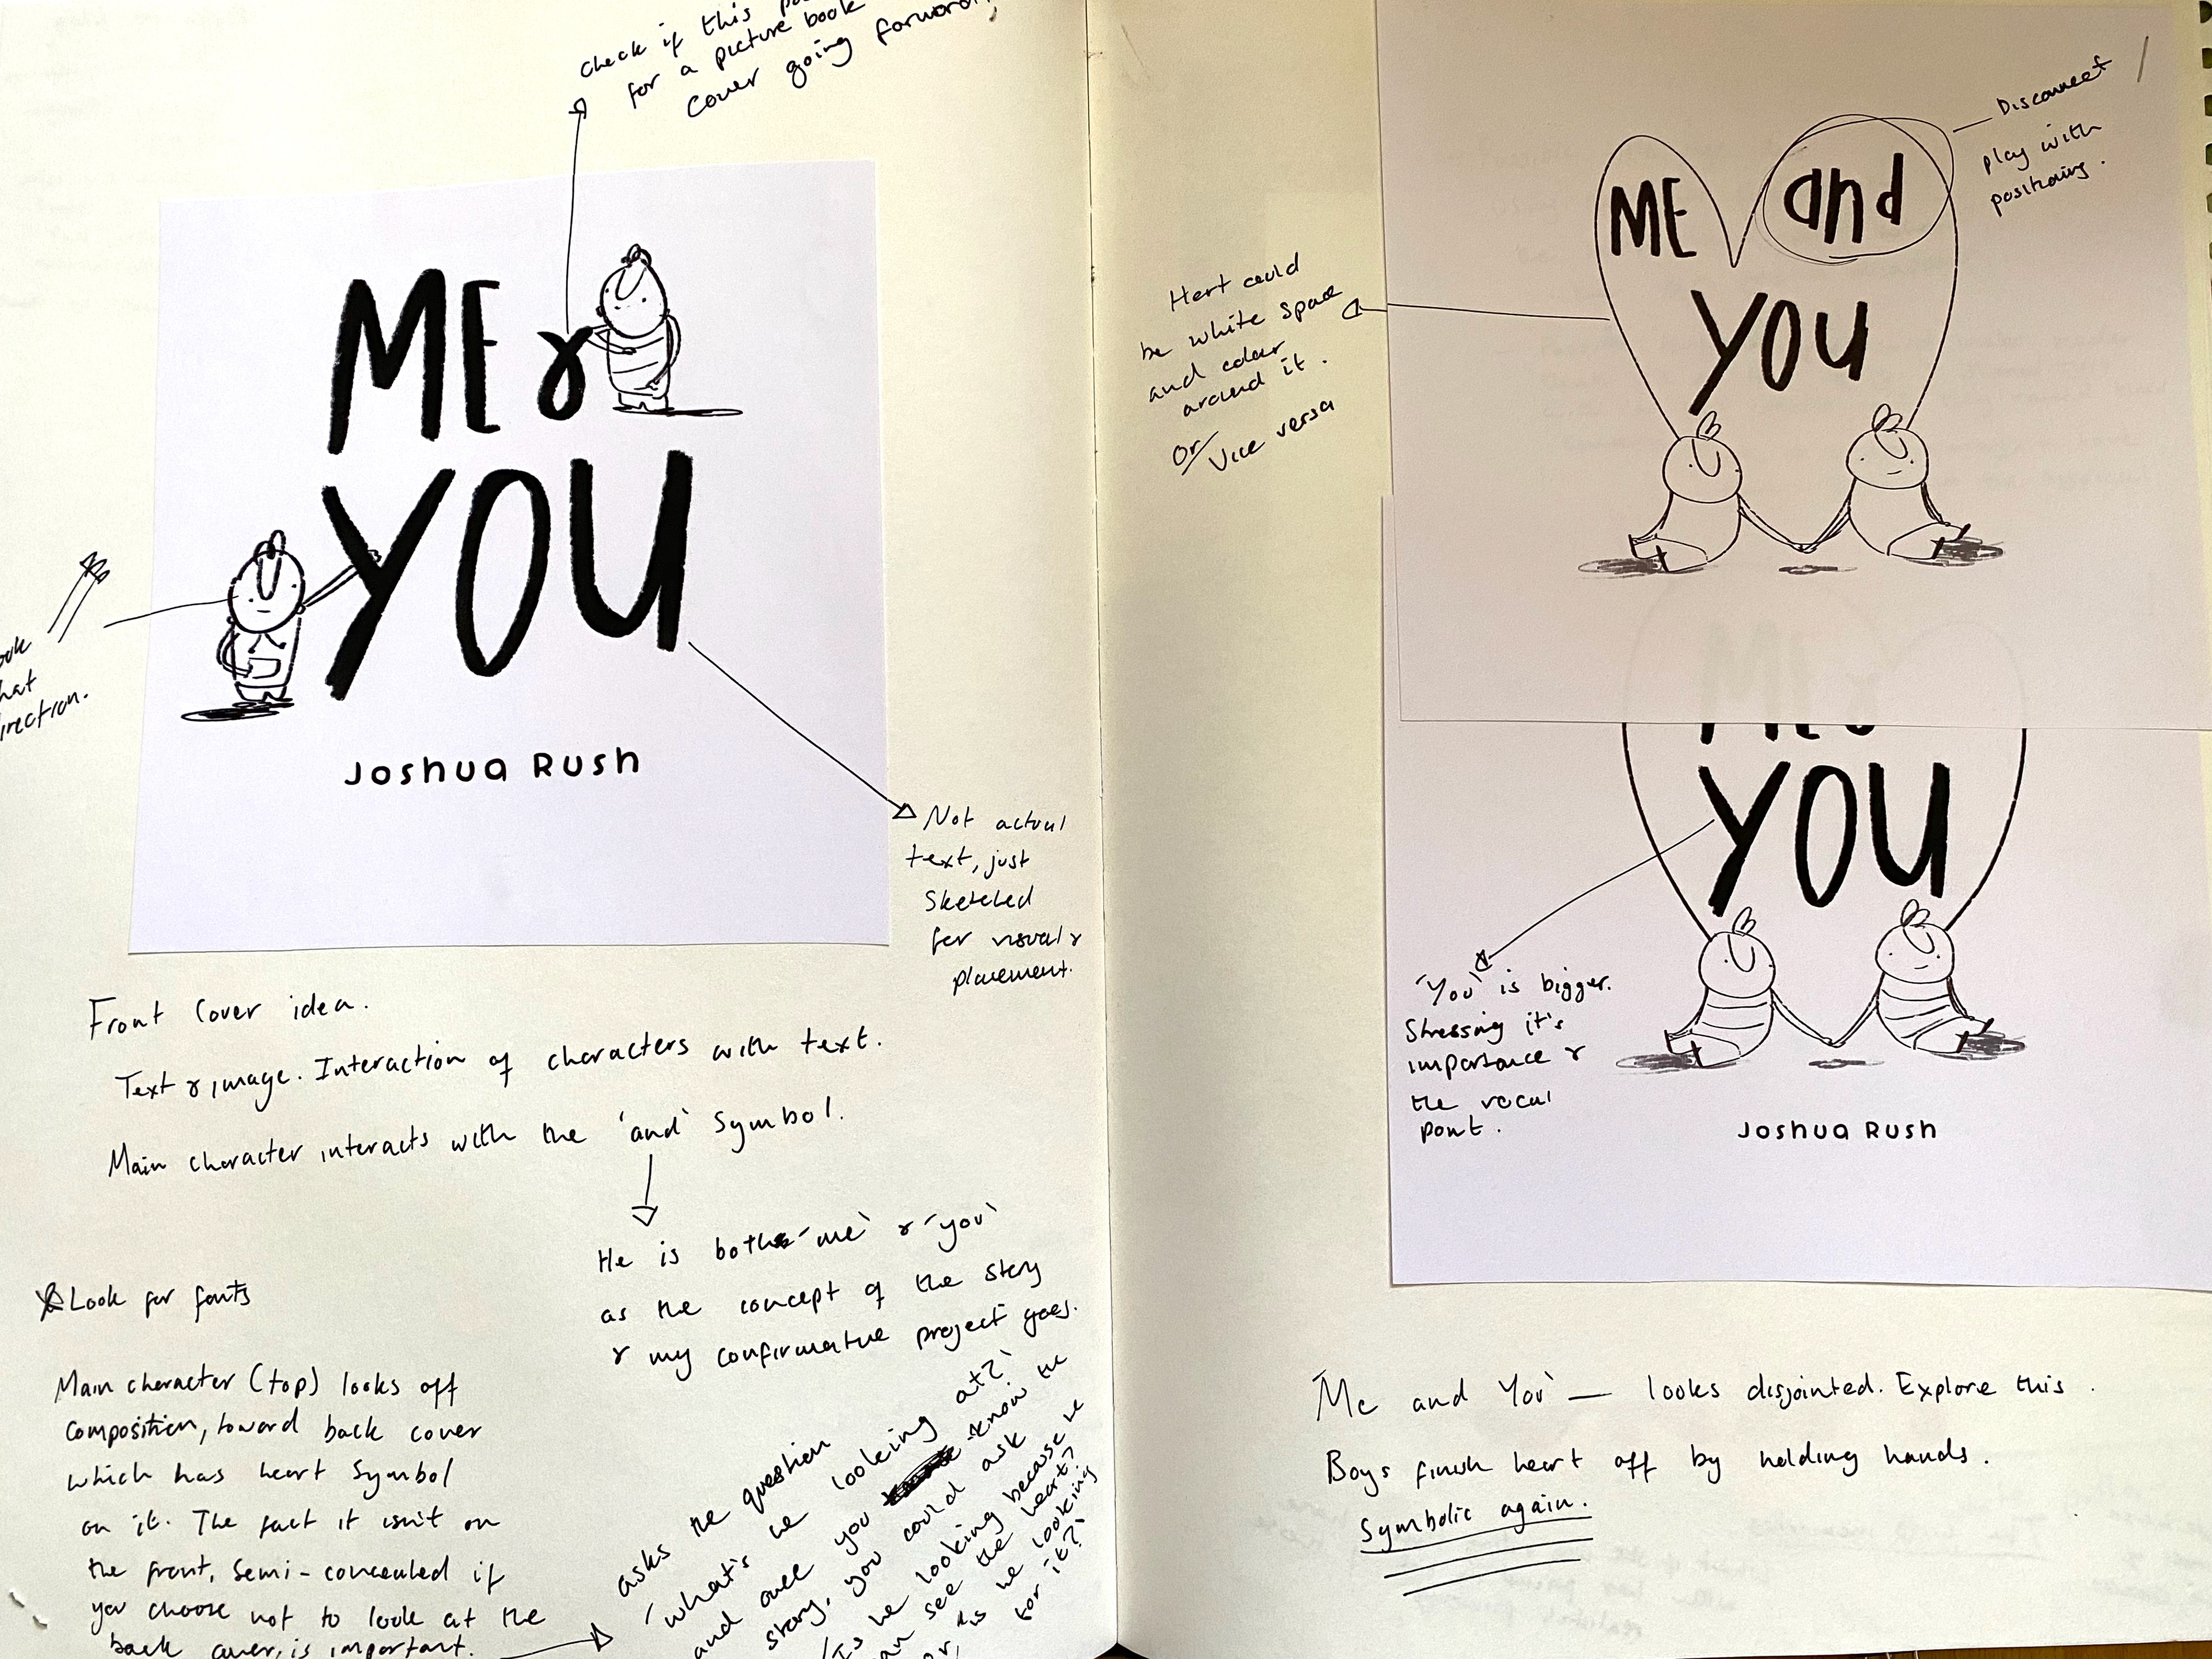 check if this
for a picture book
cover going forward,
ME &
YOU
Joshua Rush
ook
hat
irection.
Not actual
text, just
sketched
for visual &
placement.
Front Cover idea.
Text & image. Interaction of characters with text.
Main character interacts with the 'and' symbol.
He is both 'me' & 'you'
as the concept of the story
& my confirmative project goes.
Look for fonts
Main character (top) looks off
composition, toward back cover
which has heart symbol
on it. The fact it isn't on
the front, semi-concealed if
you choose not to look at the
back cover, is important.
asks the question
'what's he looking at?'
and once you know the
story, you could ask
'Is he looking because he
can see the heart?
or, 'is he looking
for it?'
Disconnect
play with
positioning.
ME and
YOU
Hert could
be white space
and colour
around it.
Or
Vice versa
ME &
YOU
'You' is bigger.
Stressing it's
importance &
the vocal
point.
Joshua Rush
'Me and You' — looks disjointed. Explore this.
Boys finish heart off by holding hands.
Symbolic again.